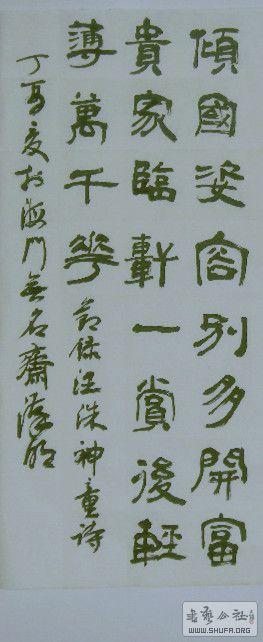 傾國姿容別多開富
貴家臨軒一賞後輕
薄萬千花 節錄汪洙神童詩
丁亥夏於海門無名齋
書藝公社
WWW.SHUFA.ORG